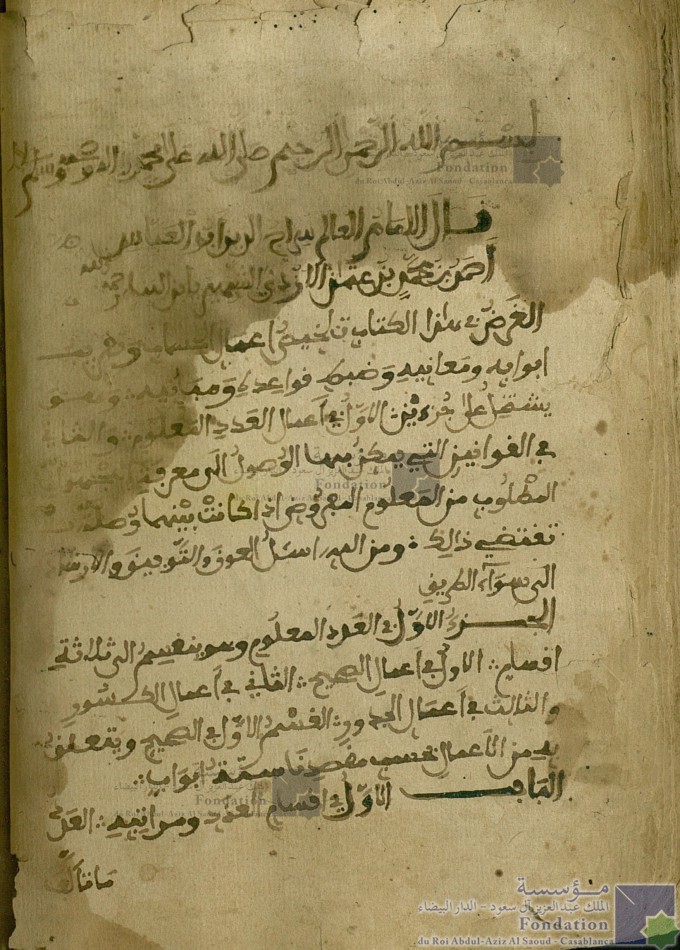 بسم الله الرحمن الرحيم صلى الله على محمد وآله وصحبه وسلم
قال الامام العالم سراج الدين ابو العباس
احمد بن محمد بن عثمن الازدي الشهير بابن البنا رحمه الله
الغرض في هذا الكتاب تلخيص اعمال الحساب وتقريب
ابوابه ومعانيه وضبط قواعده ومبانيه وهو
يشتمل على جزءين الاول في اعمال العدد المعلوم والثاني
في القوانين التي يمكن بها الوصول الى معرفة
المطلوب من المعلوم المفروض اذا كانت بينهما وصلة
تقتضي ذالك ومن الله اسئل العون والتوفيق والارشاد
الى سواء الطريق
الجزء الاول في العدد المعلوم وهو ينقسم الى ثلاثة
اقسام الاول في اعمال الصحيح الثاني في اعمال الكسور
والثالث في اعمال الجذور القسم الاول في الصحيح ويتعلق
به من الاعمال بحسب مقصدنا ستة ابواب
الباب الاول في اقسام العدد ومراتبه العدد
ما تألف
مؤسسة
الملك عبد العزيز آل سعود - الدار البيضاء
Fondation
du Roi Abdul-Aziz Al Saoud - Casablanca